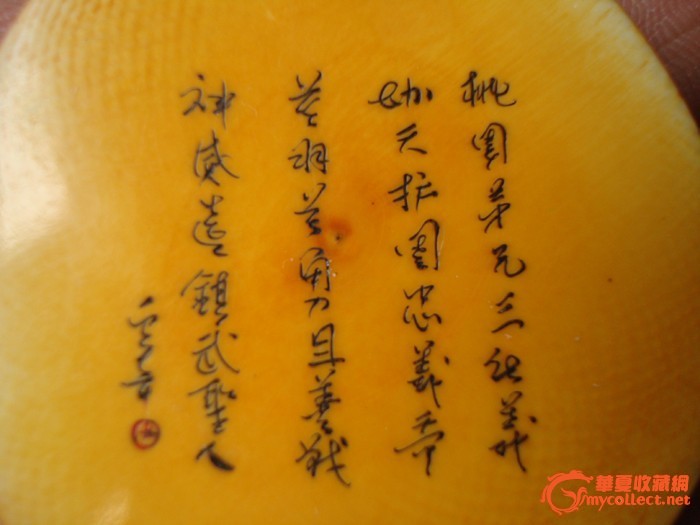 桃園弟兄三結義
天护國忠義
羽勇且善戰
神威遠鎮武聖人
華夏收藏網
mycollect.net